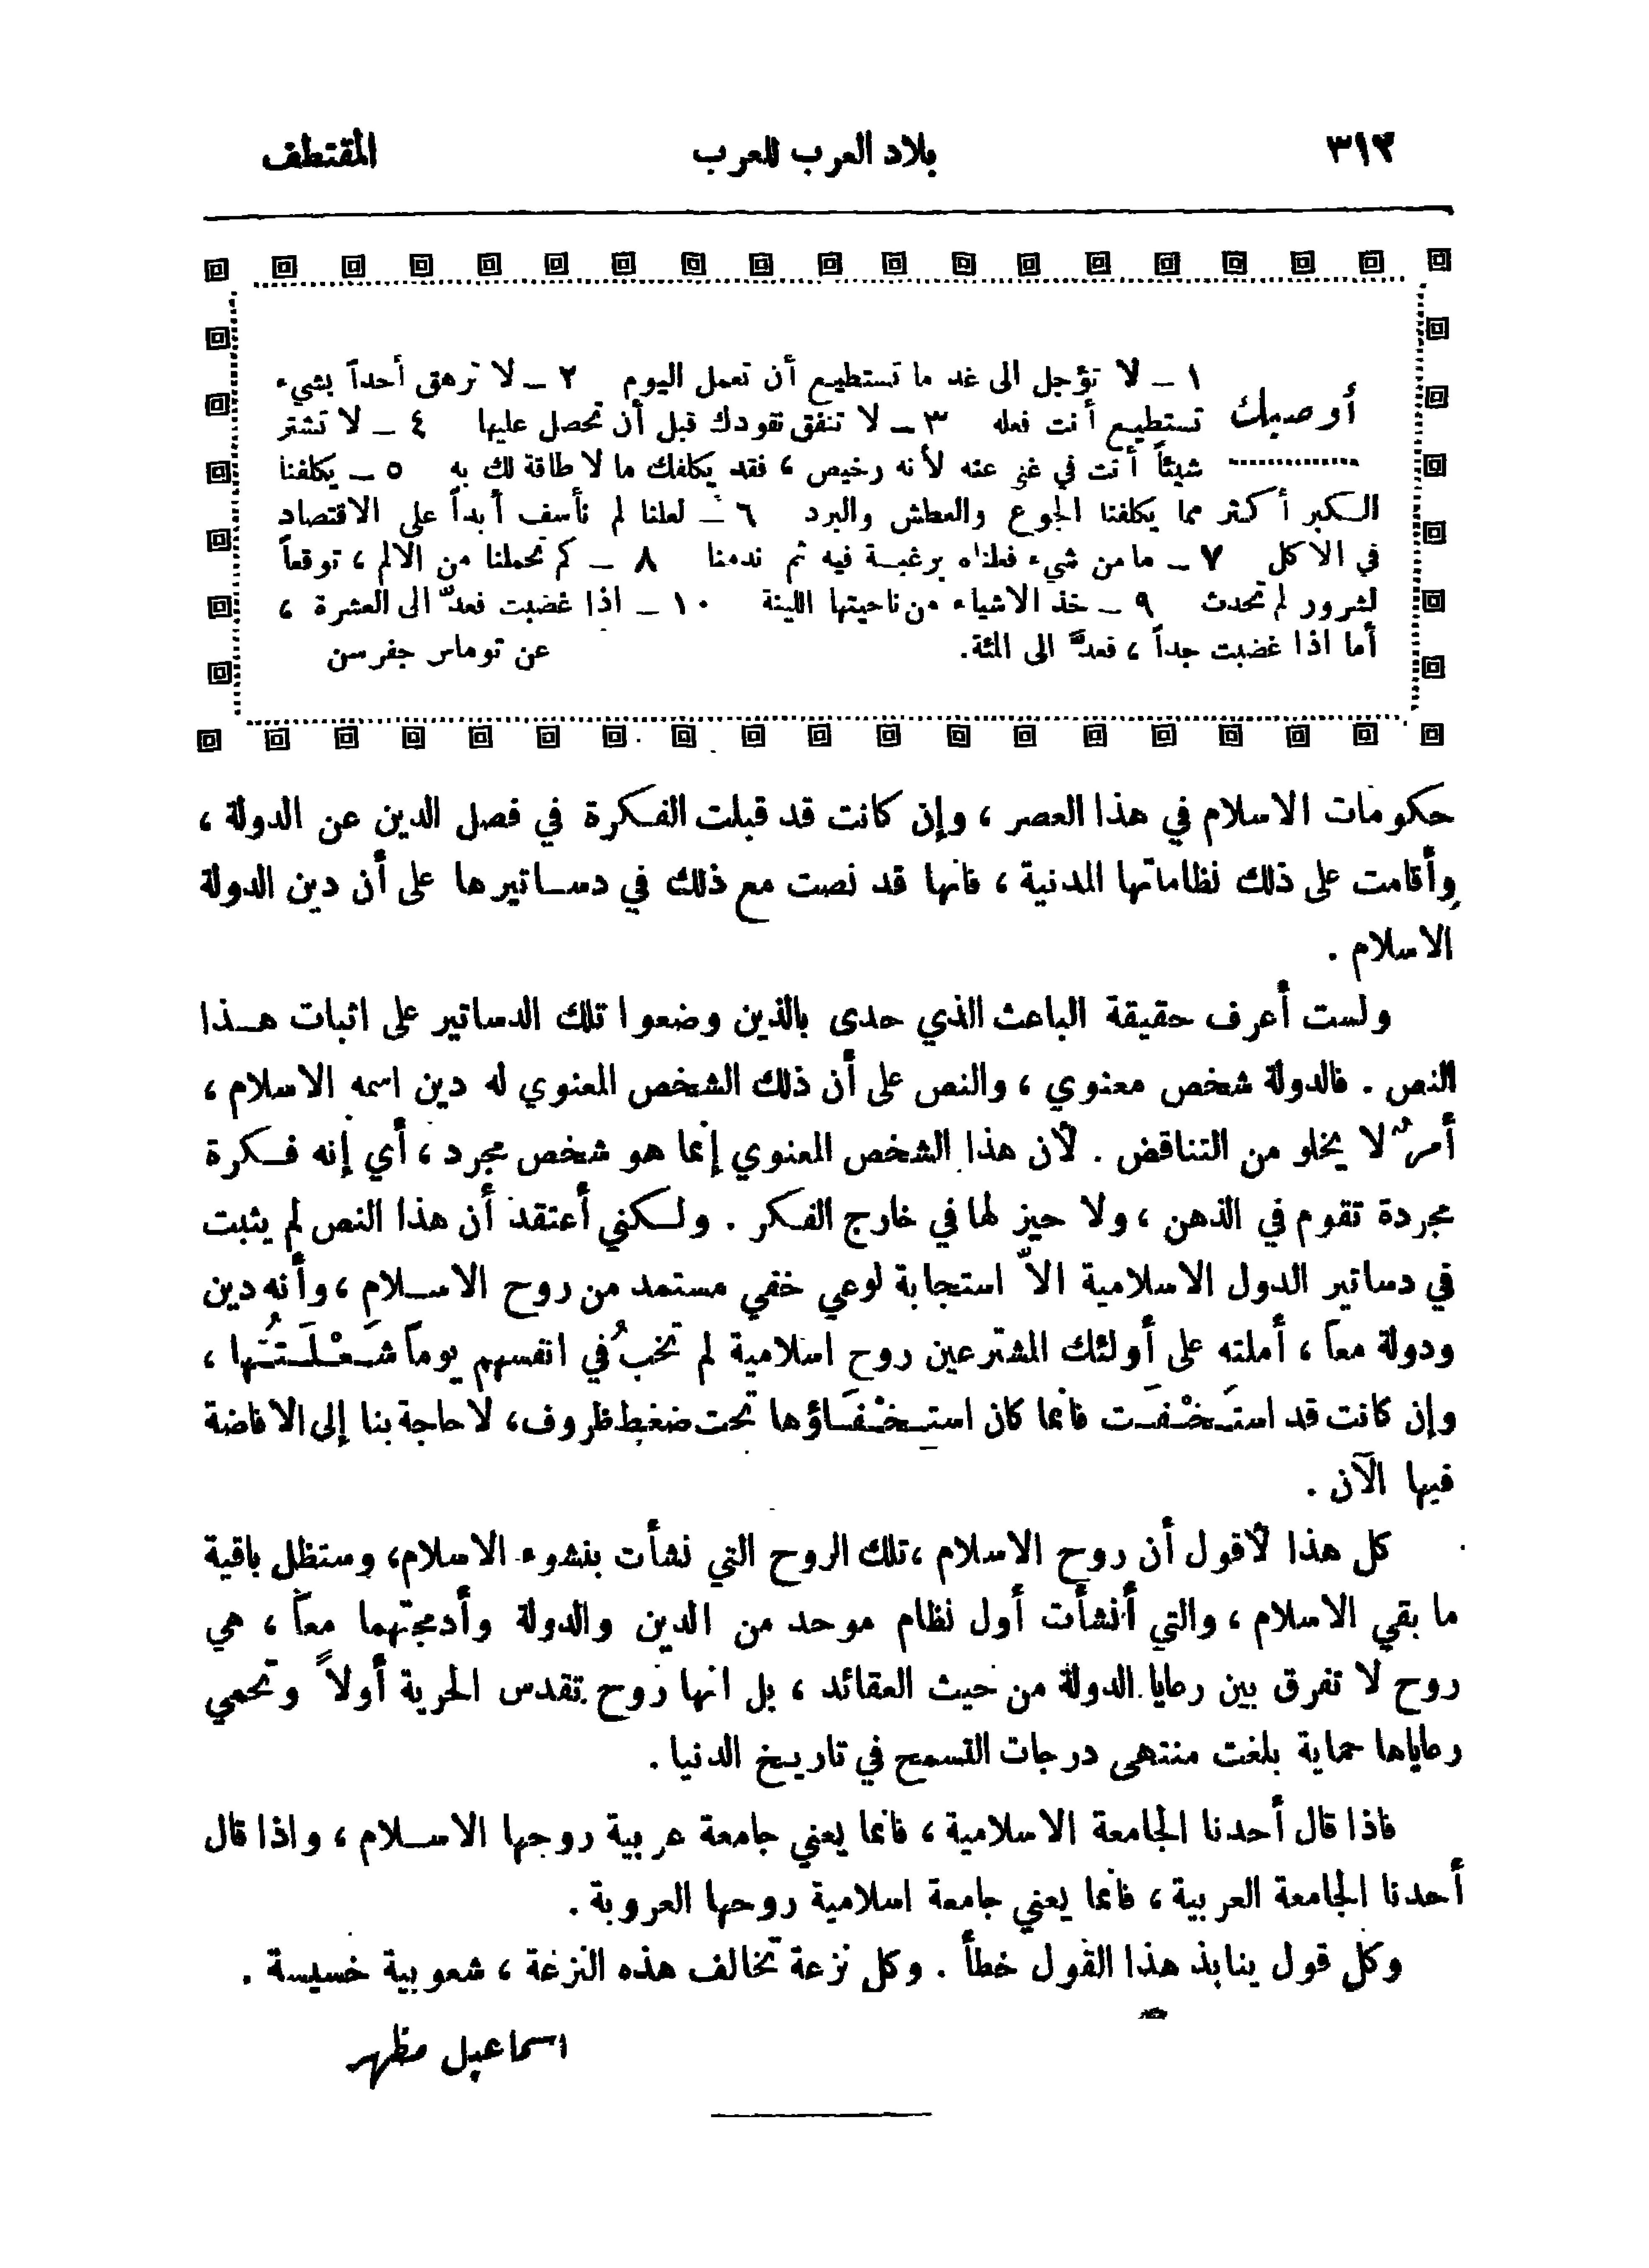 ٣١٢ بلاد العرب للعرب المقتطف
أوصيك
١ ـ لا تؤجل الى غد ما تستطيع أن تعمل اليوم ٢ ـ لا ترهق أحداً بشيء
تستطيع أنت فعله ٣ ـ لا تنفق نقودك قبل أن تحصل عليها ٤ ـ لا تشتر
شيئاً أنت في غنى عنه لأنه رخيص ، فقد يكلفك ما لا طاقة لك به ٥ ـ يكلفنا
الكبر أكثر مما يكلفنا الجوع والعطش والبرد ٦ ـ لعلنا لم نأسف أبداً على الاقتصاد
في الاكل ٧ ـ ما من شيء فعلناه برغبة فيه ثم ندمنا ٨ ـ كم تحملنا من الالم ، توقعاً
لشرور لم تحدث ٩ ـ خذ الاشياء من ناحيتها اللينة ١٠ ـ اذا غضبت فعدّ الى العشرة ،
أما اذا غضبت جداً ، فعدّ الى المئة .
عن توماس جفرسن
حكومات الاسلام في هذا العصر ، وإن كانت قد قبلت الفكرة في فصل الدين عن الدولة ،
وأقامت على ذلك نظاماتها المدنية ، فانها قد نصت مع ذلك في دساتيرها على أن دين الدولة
الاسلام .
ولست أعرف حقيقة الباعث الذي حدى بالذين وضعوا تلك الدساتير على اثبات هذا
النص . فالدولة شخص معنوي ، والنص على أن ذلك الشخص المعنوي له دين اسمه الاسلام ،
أمرٌ لا يخلو من التناقض . لأن هذا الشخص المعنوي إنما هو شخص مجرد ، أي إنه فكرة
مجردة تقوم في الذهن ، ولا حيز لها في خارج الفكر . ولكني أعتقد أن هذا النص لم يثبت
في دساتير الدول الاسلامية الاّ استجابة لوعي خفي مستمد من روح الاسلام ، وأنه دين
ودولة معاً ، أملته على أولئك المشترعين روح اسلامية لم تخبُ في انفسهم يوماً شَعْلَتُها ،
وإن كانت قد استَخْفَت فانما كان استِخْفَاؤها تحت ضغط ظروف ، لا حاجة بنا إلى الافاضة
فيها الآن .
كل هذا لأقول أن روح الاسلام ، تلك الروح التي نشأت بنشوء الاسلام ، وستظل باقية
ما بقي الاسلام ، والتي أنشأت أول نظام موحد من الدين والدولة وأدمجتهما معاً ، هي
روح لا تفرق بين رعايا الدولة من حيث العقائد ، بل انها روح تقدس الحرية أولاً وتحمي
رعاياها حماية بلغت منتهى درجات التسمح في تاريخ الدنيا .
فاذا قال أحدنا الجامعة الاسلامية ، فانما يعني جامعة عربية روحها الاسلام ، واذا قال
أحدنا الجامعة العربية ، فانما يعني جامعة اسلامية روحها العروبة .
وكل قول ينابذ هذا القول خطأ . وكل نزعة تخالف هذه النزعة ، شعوبية خسيسة .
اسماعيل مظهر